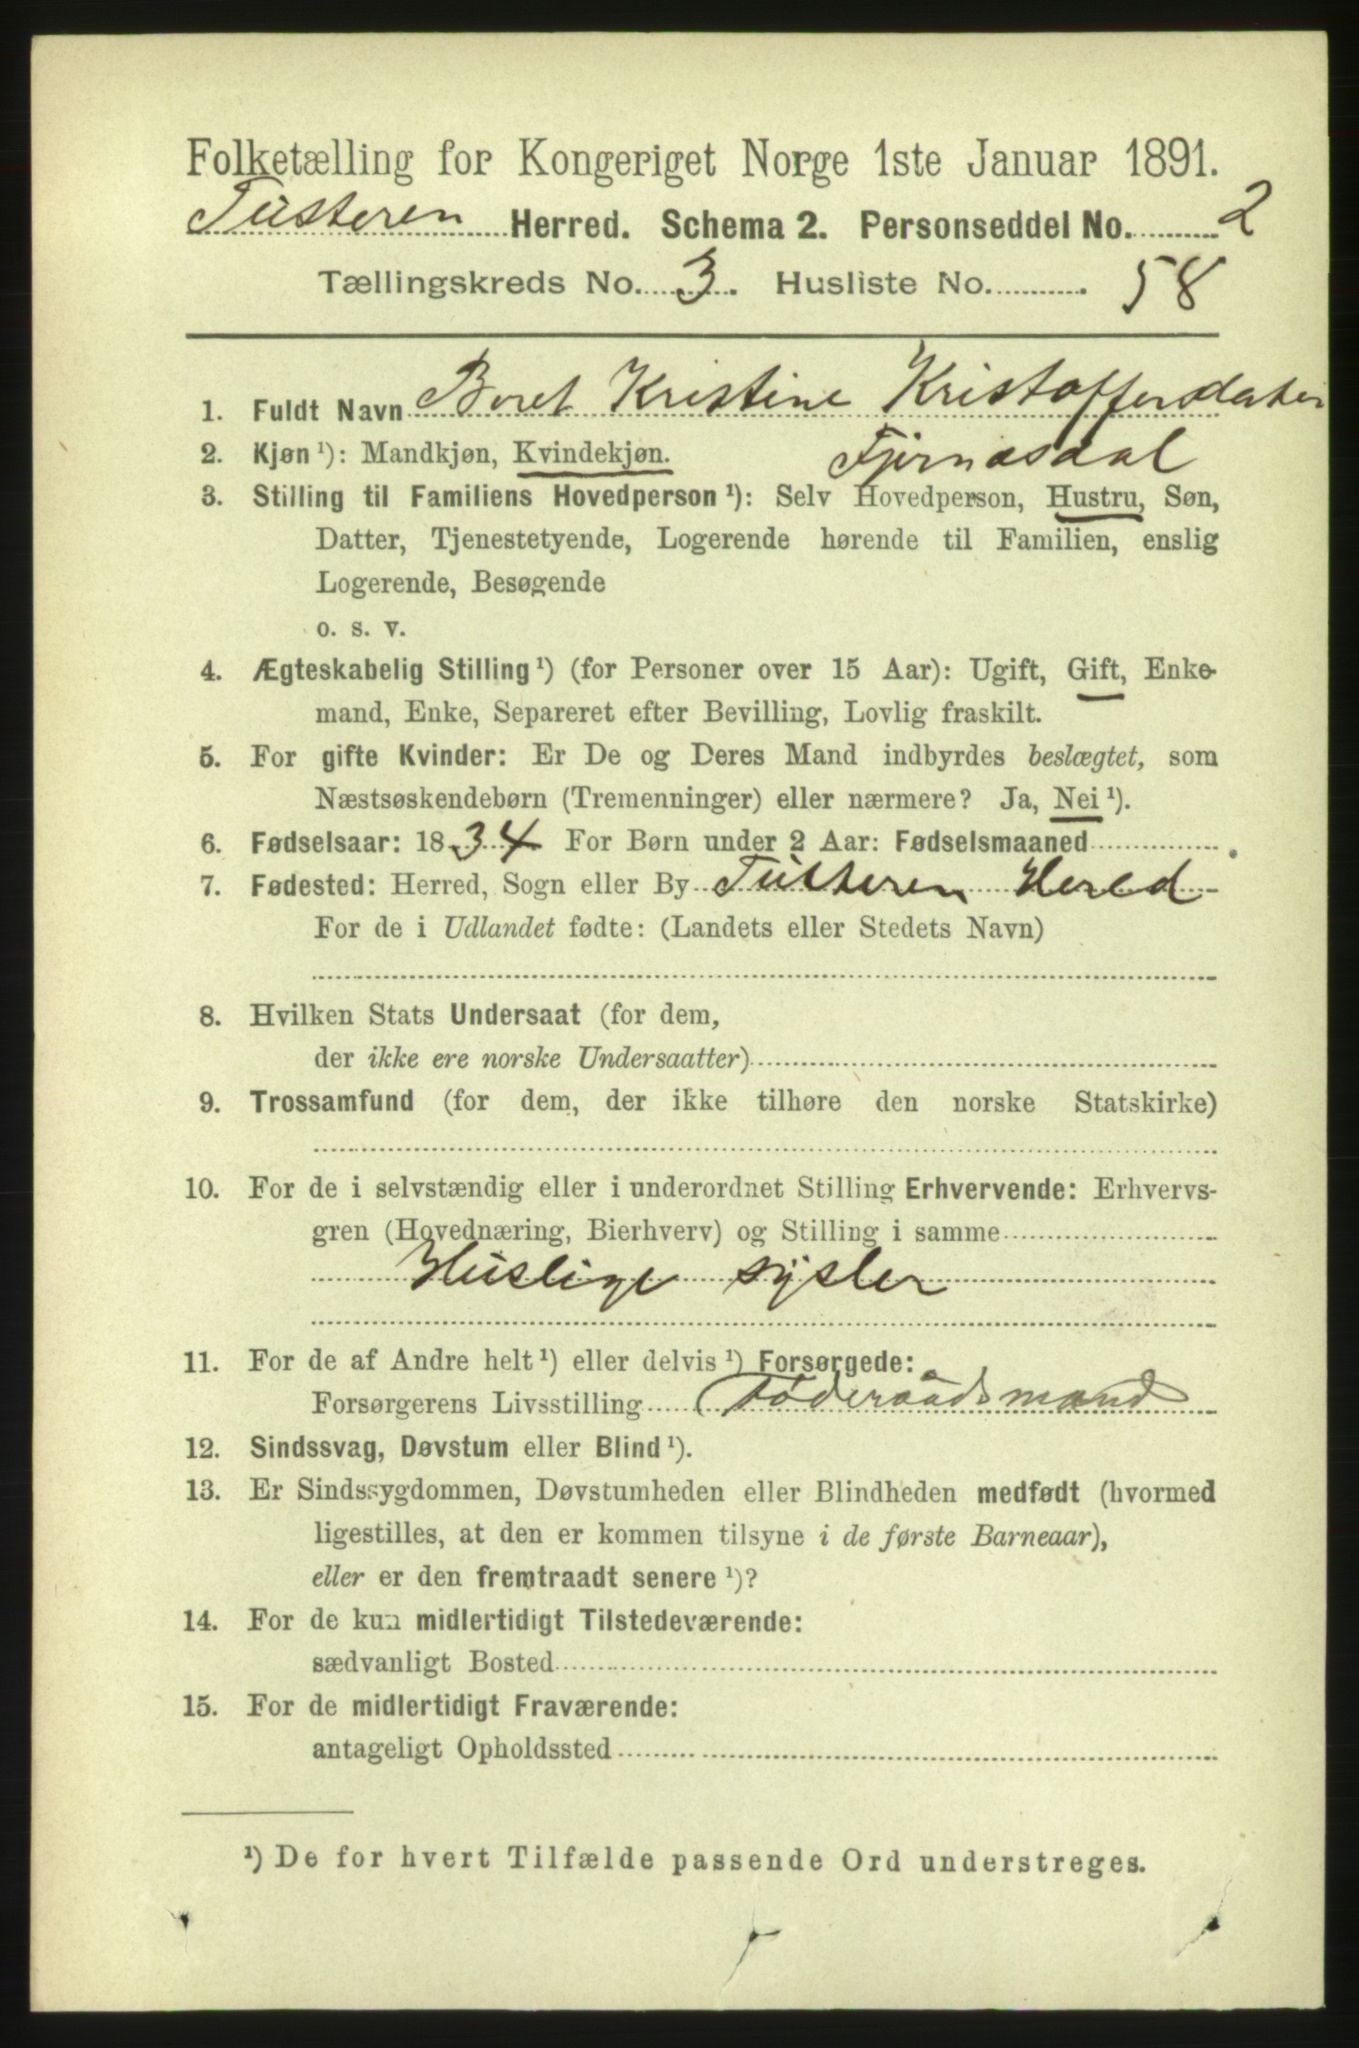 Folketælling for Kongeriget Norge 1ste Januar 1891.
Tusteren Herred. Schema 2. Personseddel No. 2
Tællingskreds No. 3. Husliste No. 58
1. Fuldt Navn Beret Kristine Kristoffersdatter
2. Kjøn ¹): Mandkjøn, Kvindekjøn.
3. Stilling til Familiens Hovedperson ¹): Selv Hovedperson, Hustru, Søn,
Datter, Tjenestetyende, Logerende hørende til Familien, enslig
Logerende, Besøgende
o. s. v.
4. Ægteskabelig Stilling ¹) (for Personer over 15 Aar): Ugift, Gift, Enke-
mand, Enke, Separeret efter Bevilling, Lovlig fraskilt.
5. For gifte Kvinder: Er De og Deres Mand indbyrdes beslægtet, som
Næstsøskendebørn (Tremenninger) eller nærmere? Ja, Nei ¹).
6. Fødselsaar: 1834 For Børn under 2 Aar: Fødselsmaaned
7. Fødested: Herred, Sogn eller By Tusteren Hered
For de i Udlandet fødte: (Landets eller Stedets Navn)
8. Hvilken Stats Undersaat (for dem,
der ikke ere norske Undersaatter)
9. Trossamfund (for dem, der ikke tilhøre den norske Statskirke)
10. For de i selvstændig eller i underordnet Stilling Erhvervende: Erhvervs-
gren (Hovednæring, Bierhverv) og Stilling i samme
Huslige sysler
11. For de af Andre helt ¹) eller delvis ¹) Forsørgede:
Forsørgerens Livsstilling Føderaadsmand
12. Sindssvag, Døvstum eller Blind ¹).
13. Er Sindssygdommen, Døvstumheden eller Blindheden medfødt (hvormed
ligestilles, at den er kommen tilsyne i de første Barneaar),
eller er den fremtraadt senere ¹)?
14. For de kun midlertidigt Tilstedeværende:
sædvanligt Bosted
15. For de midlertidigt Fraværende:
antageligt Opholdssted
¹) De for hvert Tilfælde passende Ord understreges.